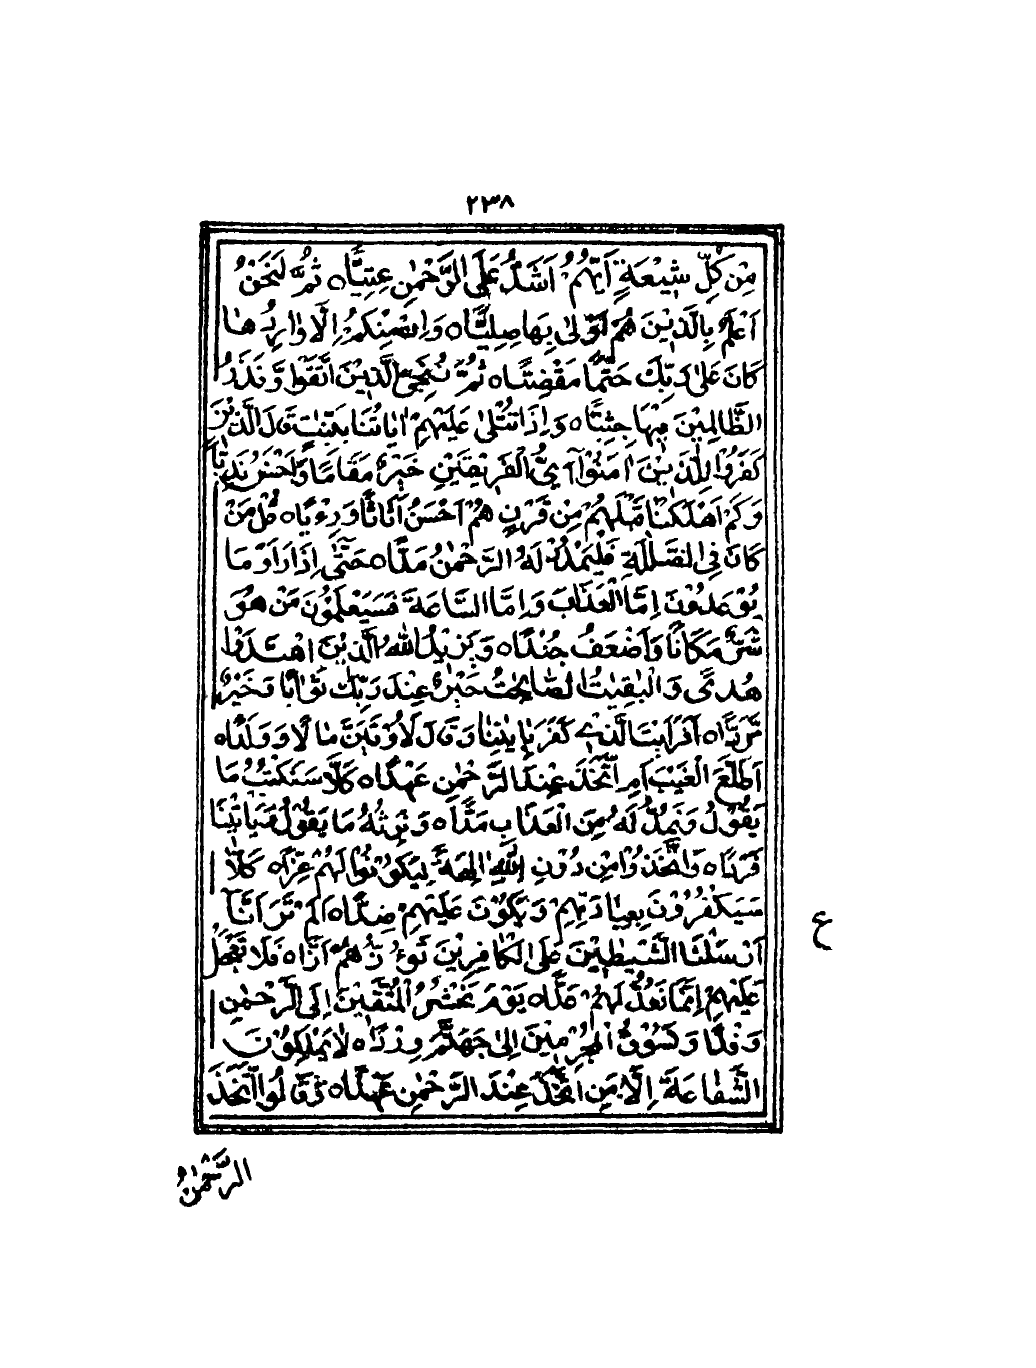 ٢٣٨
مِنْ كُلِّ شِيْعَةٍ اَيُّهُمْ اَشَدُّ عَلَى الرَّحْمٰنِ عِتِيًّا ه ثُمَّ لَنَحْنُ
اَعْلَمُ بِالَّذِيْنَ هُمْ اَوْلٰى بِهَا صِلِيًّا ه وَاِنْ مِنْكُمْ اِلَّا وَارِدُهَا
كَانَ عَلٰى رَبِّكَ حَتْمًا مَقْضِيًّا ه ثُمَّ نُنَجِّى الَّذِيْنَ اتَّقَوْا وَّنَذَرُ
الظَّالِمِيْنَ فِيْهَا جِثِيًّا ه وَاِذَا تُتْلٰى عَلَيْهِمْ اٰيَاتُنَا بَيِّنٰتٍ قَالَ الَّذِيْنَ
كَفَرُوْا لِلَّذِيْنَ اٰمَنُوْا اَىُّ الْفَرِيْقَيْنِ خَيْرٌ مَقَامًا وَّاَحْسَنُ نَدِيًّا
وَكَمْ اَهْلَكْنَا قَبْلَهُمْ مِنْ قَرْنٍ هُمْ اَحْسَنُ اَثَاثًا وَرِءْيًا ه قُلْ مَنْ
كَانَ فِى الضَّلٰلَةِ فَلْيَمْدُدْ لَهُ الرَّحْمٰنُ مَدًّا ه حَتّٰى اِذَا رَاَوْ مَا
يُوْعَدُوْنَ اِمَّا الْعَذَابَ وَاِمَّا السَّاعَةَ فَسَيَعْلَمُوْنَ مَنْ هُوَ
شَرٌّ مَكَانًا وَّاَضْعَفُ جُنْدًا ه وَيَزِيْدُ اللّٰهُ الَّذِيْنَ اهْتَدَوْا
هُدًى وَالْبٰقِيٰتُ الصَّالِحٰتُ خَيْرٌ عِنْدَ رَبِّكَ ثَوَابًا وَّخَيْرٌ
مَّرَدًّا ه اَفَرَاَيْتَ الَّذِيْ كَفَرَ بِاٰيٰتِنَا وَقَالَ لَاُوْتَيَنَّ مَالًا وَّوَلَدًا ه
اَطَّلَعَ الْغَيْبَ اَمِ اتَّخَذَ عِنْدَ الرَّحْمٰنِ عَهْدًا ه كَلَّا سَنَكْتُبُ مَا
يَقُوْلُ وَنَمُدُّ لَهُ مِنَ الْعَذَابِ مَدًّا ه وَّنَرِثُهُ مَا يَقُوْلُ وَيَاْتِيْنَا
فَرْدًا ه وَاتَّخَذُوْا مِنْ دُوْنِ اللّٰهِ اٰلِهَةً لِيَكُوْنُوْا لَهُمْ عِزًّا ه كَلَّا
سَيَكْفُرُوْنَ بِعِبَادَتِهِمْ وَيَكُوْنُوْنَ عَلَيْهِمْ ضِدًّا ه اَلَمْ تَرَ اَنَّا
اَرْسَلْنَا الشَّيٰطِيْنَ عَلَى الْكَافِرِيْنَ تَؤُزُّهُمْ اَزًّا ه فَلَا تَعْجَلْ
عَلَيْهِمْ اِنَّمَا نَعُدُّ لَهُمْ عَدًّا ه يَوْمَ نَحْشُرُ الْمُتَّقِيْنَ اِلَى الرَّحْمٰنِ
وَفْدًا وَّنَسُوْقُ الْمُجْرِمِيْنَ اِلٰى جَهَنَّمَ وِرْدًا ه لَا يَمْلِكُوْنَ
الشَّفَاعَةَ اِلَّا مَنِ اتَّخَذَ عِنْدَ الرَّحْمٰنِ عَهْدًا ه وَقَالُوا اتَّخَذَ
ع
الرَّحْمٰنُ